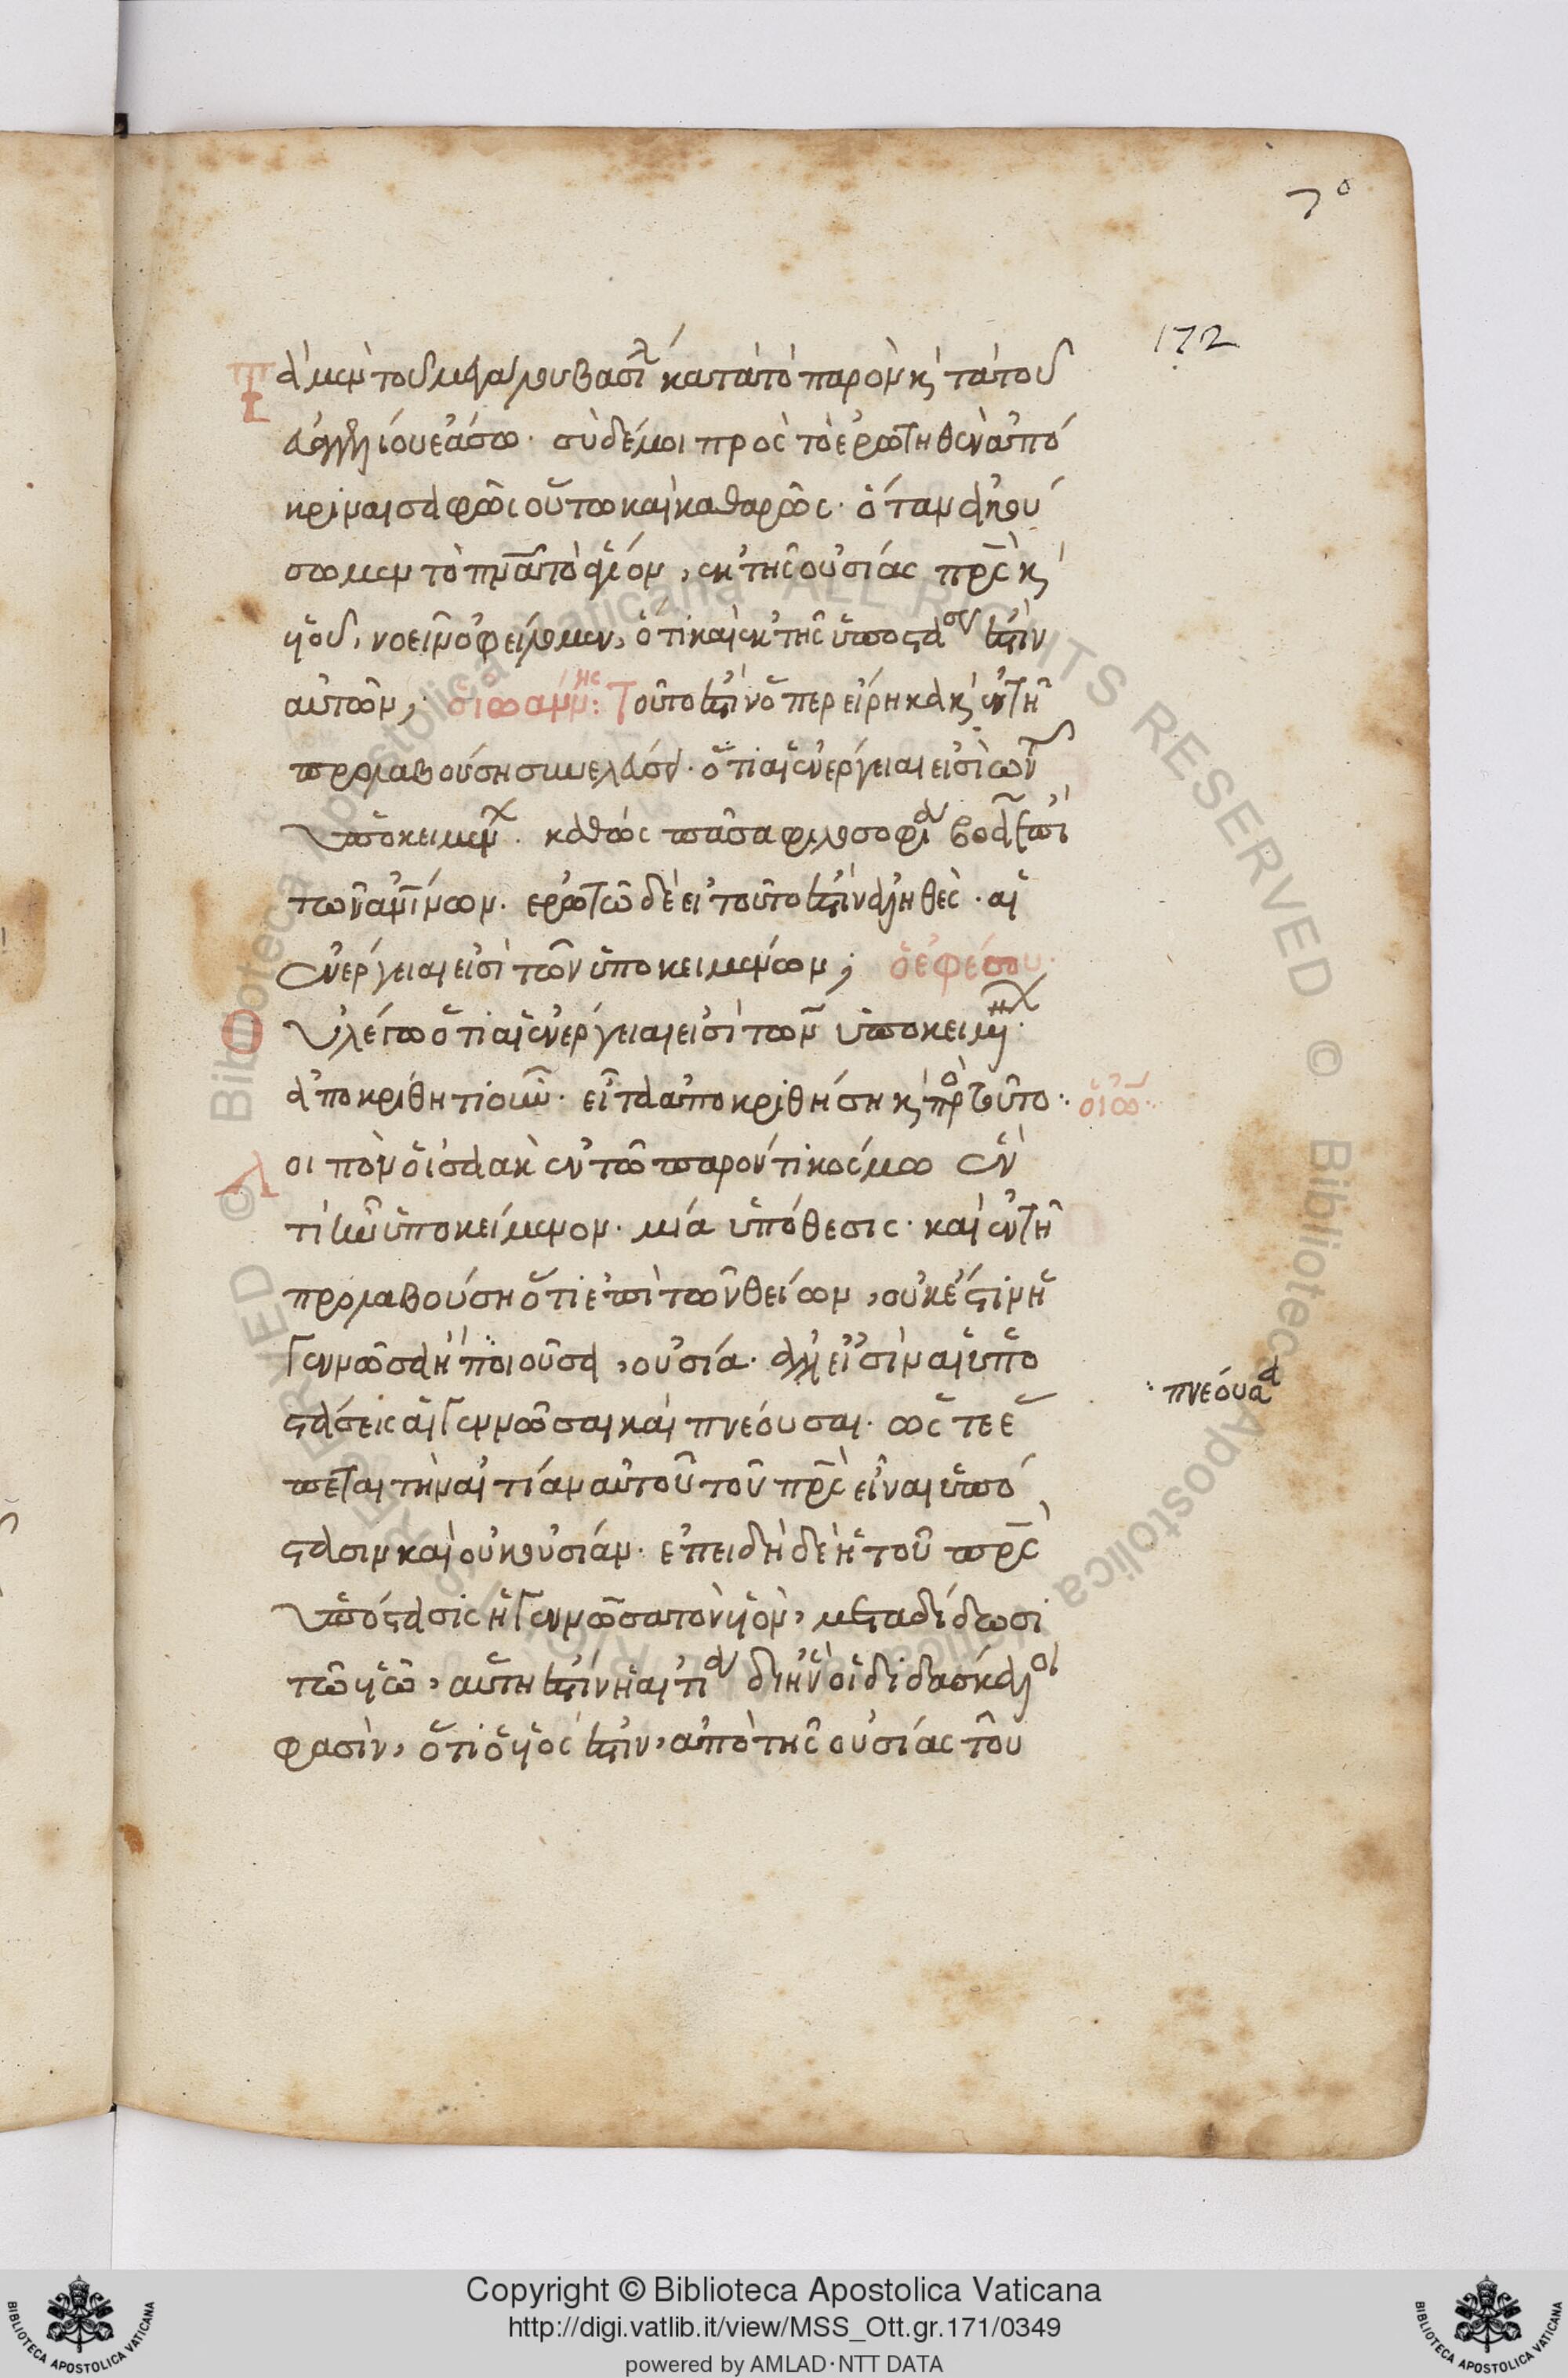 7°
172
Τὰ μὲν τοῦ μεγάλου βασιλ κατὰ τὸ παρὸν κ τὰ τοῦ
ἀγγελίου ἐάσω· σὺ δέ μοι πρὸς τὸ ἐρωτηθὲν ἀπό
κριναι σαφῶς οὕτω καὶ καθαρῶς· ὅταν ἀκού
σωμεν τὸ πνα τὸ ἅγιον, ἐκ τῆς οὐσίας πρς κ
υἱοῦ, νοεῖν ὀφείλομεν, ὅτι καὶ ἐκ τῆς ὑποστάσ ἐστὶν
αὐτῶν; ὁ ἰωάννης: Τοῦτο ἐστὶν ὅπερ εἴρηκα κ ἐν τῆ
προλαβούση συνελεύσει· ὅτι αἱ ἐνέργειαι εἰσὶ τῶν
ὑποκειμέν· καθὼς πᾶσα φιλοσοφία βοᾶ ἐπὶ
τῶν· ἐρωτῶ δὲ εἰ τοῦτο ἐστὶν ἀληθὲς· αἱ
ἐνέργειαι εἰσὶ τῶν ὑποκειμένων; ὁ ἐφέσου·
Οὐ λέγω ὅτι αἱ ἐνέργειαι εἰσὶ τῶν ὑποκειμέν·
ἀποκρίθητι οὖν· εἶτα ἀποκριθήση κ πρὸ τοῦτο· ὁ ἰω·
Λοιπὸν ὁ ἰσαὰκ ἐν τῶ παρόντι κόσμω ἕν
τι ἦν ὑποκείμενον· μία ὑπόθεσις· καὶ ἐν τῆ
προλαβούση ὅτι ἐπὶ τῶν θείων, οὐκ ἔστιν ἡ
γεννῶσα ἢ ποιοῦσα, οὐσία· ἀλλ εἰσὶν αἱ ὑπο
στάσεις αἱ γεννῶσαι καὶ πνέουσαι· ὥς τε ἕ
πεται τὴν αἰτίαν αὐτοῦ τοῦ πρς εἶναι ὑπό
στασιν καὶ οὐκ οὐσίαν· ἐπειδὴ δὲ ἡ τοῦ πρς
ὑπόστασις ἡ γεννῶσα τὸν υἱὸν, μεταδίδωσι
τῶ υἱῶ, αὕτη ἐστὶν ἡ αἰτία δι ἣν οἱ διδάσκαλοι
φασὶν, ὅτι ὁ υἱὸς ἐστὶν, ἀπὸ τῆς οὐσίας τοῦ
πνέουσα
Copyright © Biblioteca Apostolica Vaticana
http://digi.vatlib.it/view/MSS_Ott.gr.171/0349
powered by AMLAD·NTT DATA
BIBLIOTECA APOSTOLICA VATICANA
BIBLIOTECA APOSTOLICA VATICANA